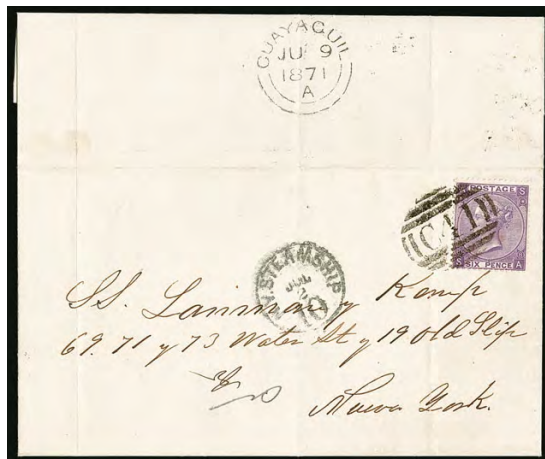 GUAYAQUIL
JU 9
1871
A
POSTAGE
C41
SIX PENCE
S A
N.Y. STEAMSHIP
10
SS. Lanman y Kemp
69. 71 y 73 Water St y 19 Old Slip
Nueva York.